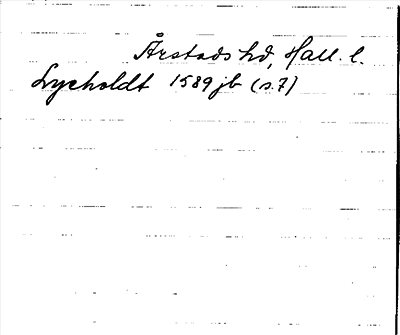 Årstads hd, Hall. l.
Lycholdt 1589 jb (s. 7)